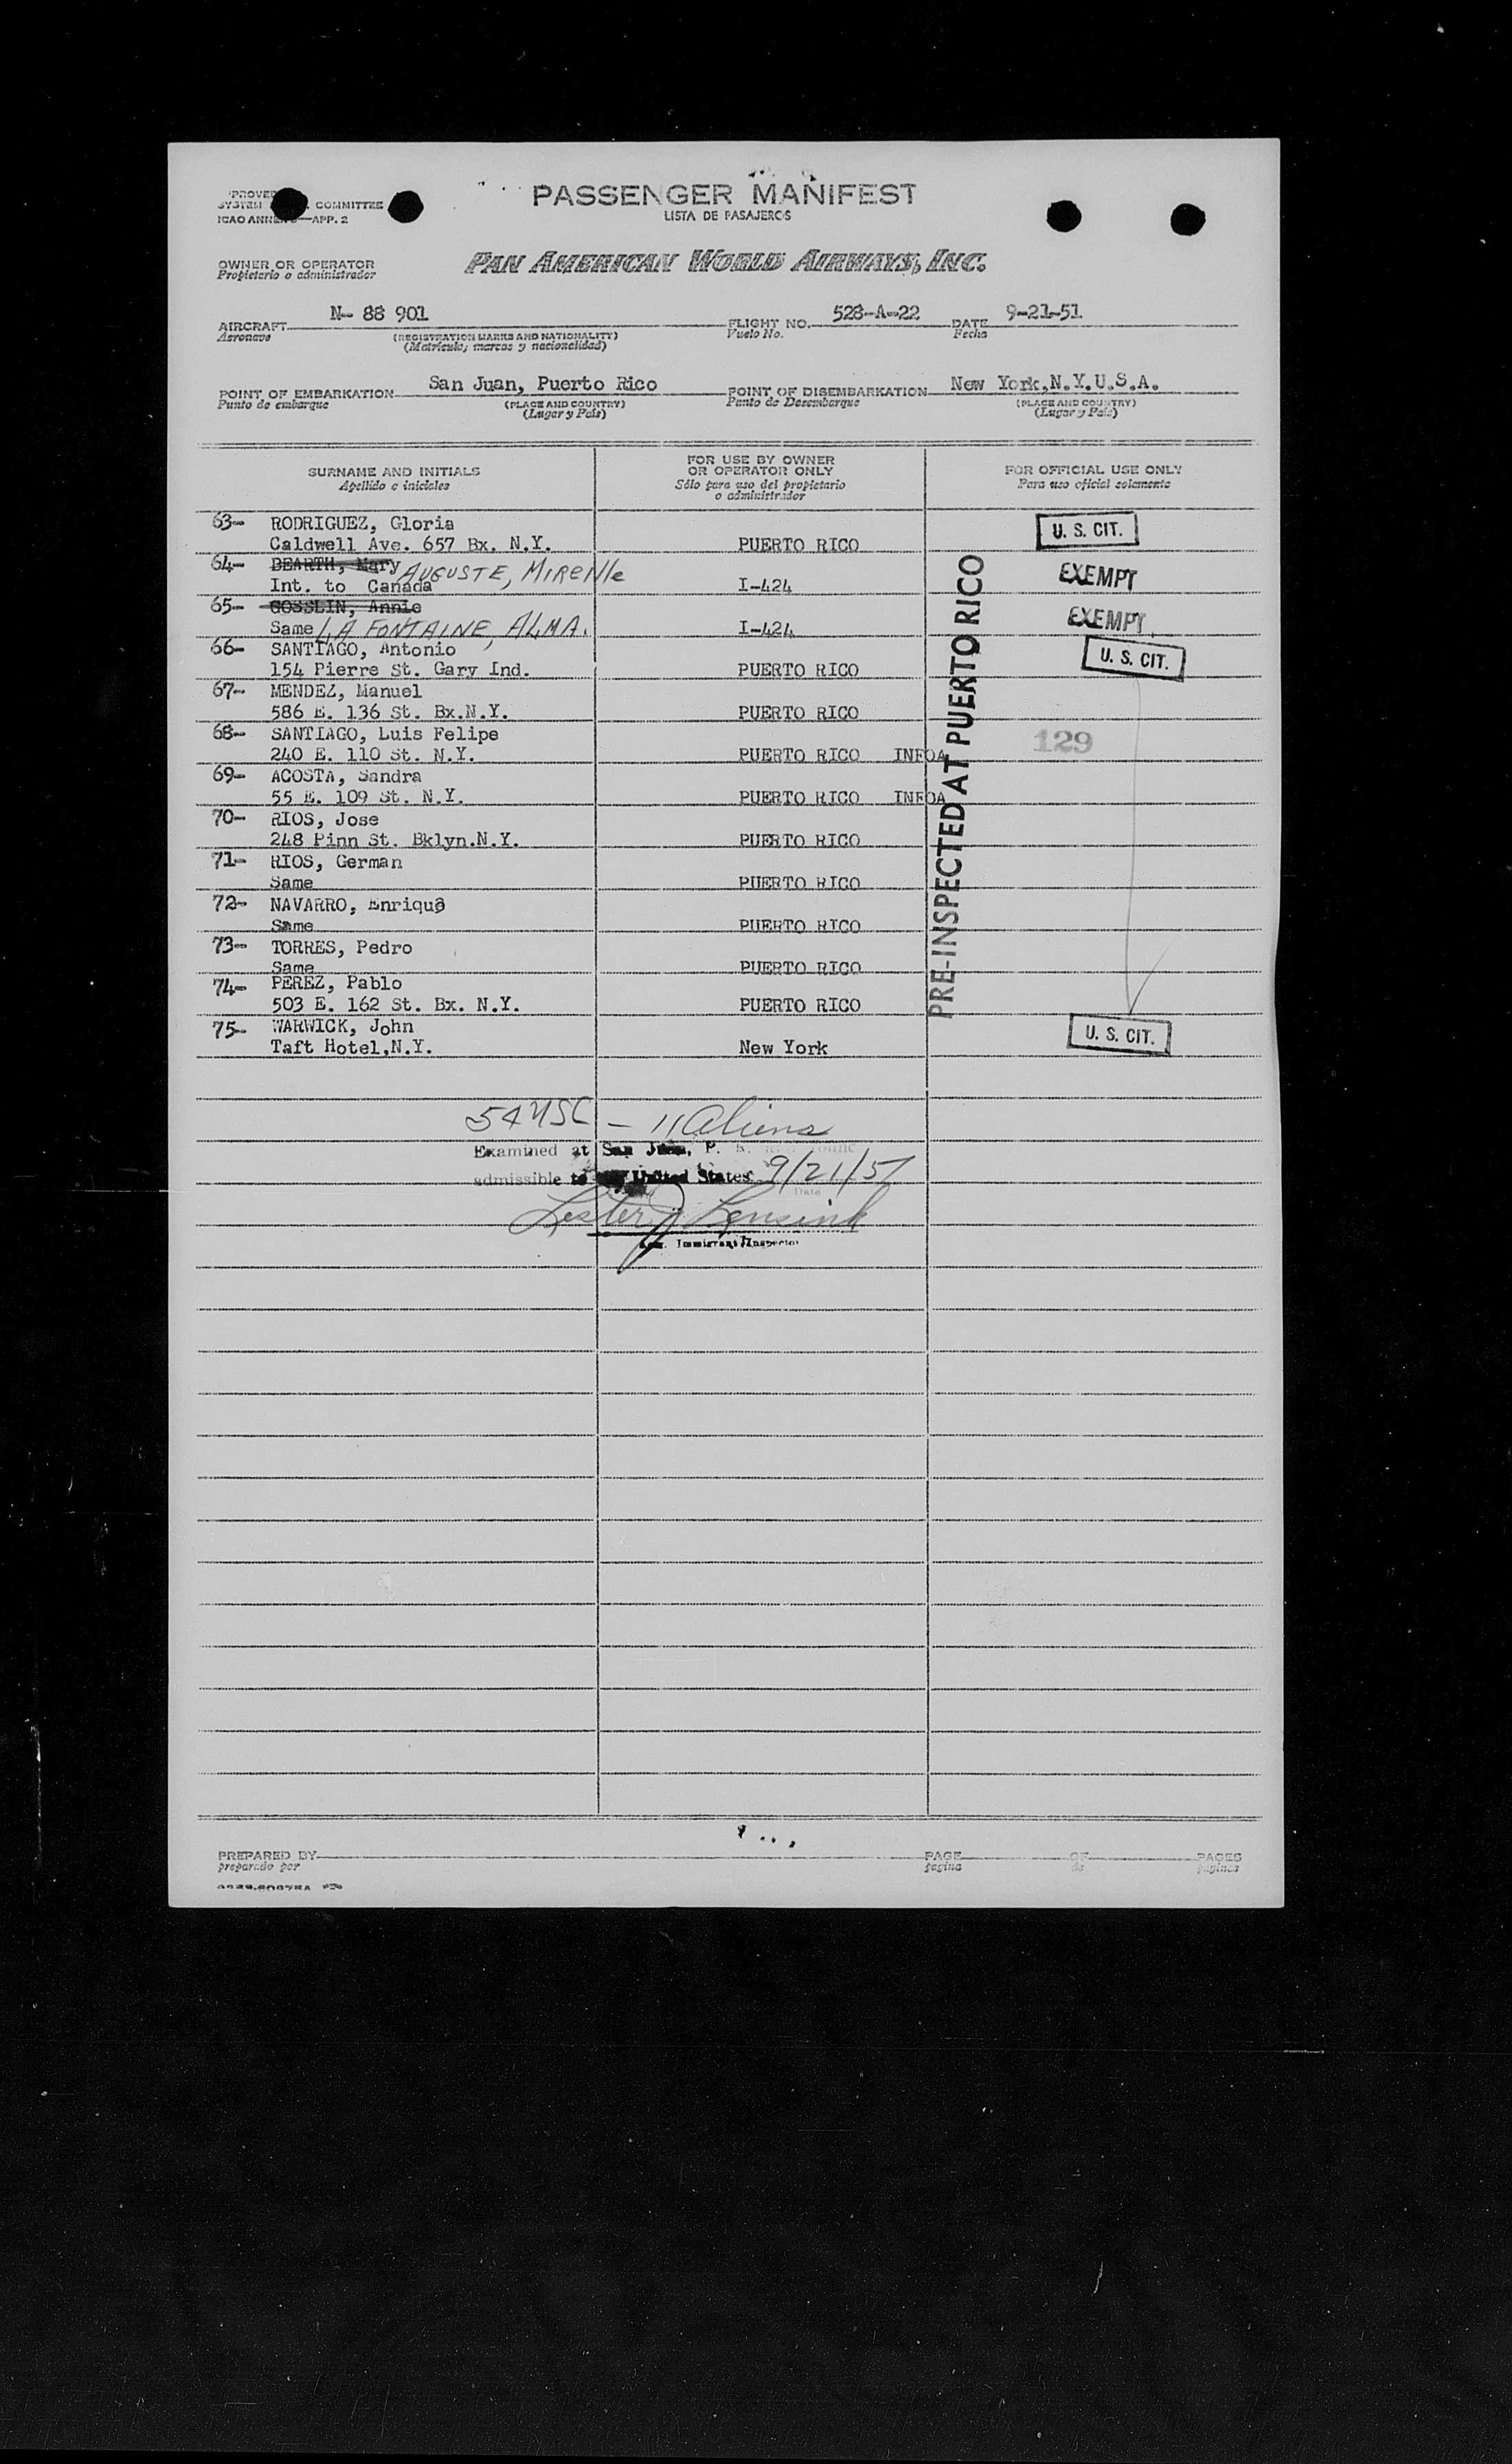 PASSENGER MANIFEST
LISTA DE PASAJEROS
COMMITTEE
APP. 2
OWNER OR OPERATOR
Propietario o administrador
PAN AMERICAN WORLD AIRWAYS, INC.
AIRCRAFT N- 88 901 FLIGHT NO. 528-A-22 DATE 9-21-51
Aeronave (REGISTRATION MARKS AND NATIONALITY) Vuelo No. Fecha
(Matrícula; marcas y nacionalidad)
POINT OF EMBARKATION San Juan, Puerto Rico POINT OF DISEMBARKATION New York,N.Y.U.S.A.
Punto de embarque (PLACE AND COUNTRY) Punto de Desembarque (PLACE AND COUNTRY)
(Lugar y País) (Lugar y País)
SURNAME AND INITIALS
Apellido e iniciales
FOR USE BY OWNER
OR OPERATOR ONLY
Sólo para uso del propietario
o administrador
FOR OFFICIAL USE ONLY
Para uso oficial solamente
63- RODRIGUEZ, Gloria
Caldwell Ave. 657 Bx. N.Y. PUERTO RICO U. S. CIT.
64- BEARTH, Mary AUGUSTE, MIREILLE
Int. to Canada I-424 EXEMPT
65- GOSSLIN, Annie
Same LA FONTAINE, ALMA. I-424 EXEMPT
66- SANTIAGO, Antonio
154 Pierre St. Gary Ind. PUERTO RICO U. S. CIT.
67- MENDEZ, Manuel
586 E. 136 St. Bx.N.Y. PUERTO RICO
68- SANTIAGO, Luis Felipe
240 E. 110 St. N.Y. PUERTO RICO INFOA 129
69- ACOSTA, Sandra
55 E. 109 St. N.Y. PUERTO RICO INFOA
70- RIOS, Jose
248 Pinn St. Bklyn.N.Y. PUERTO RICO
71- RIOS, German
Same PUERTO RICO
72- NAVARRO, Enrique
Same PUERTO RICO
73- TORRES, Pedro
Same PUERTO RICO
74- PEREZ, Pablo
503 E. 162 St. Bx. N.Y. PUERTO RICO
75- WARWICK, John
Taft Hotel,N.Y. New York U. S. CIT.
PRE-INSPECTED AT PUERTO RICO
54 USC - 11 Aliens
Examined at San Juan, P.
admissible to United States 9/21/51
Date
Lester J Lensink
Immigrant Inspector
PREPARED BY PAGE OF PAGES
preparado por página de páginas